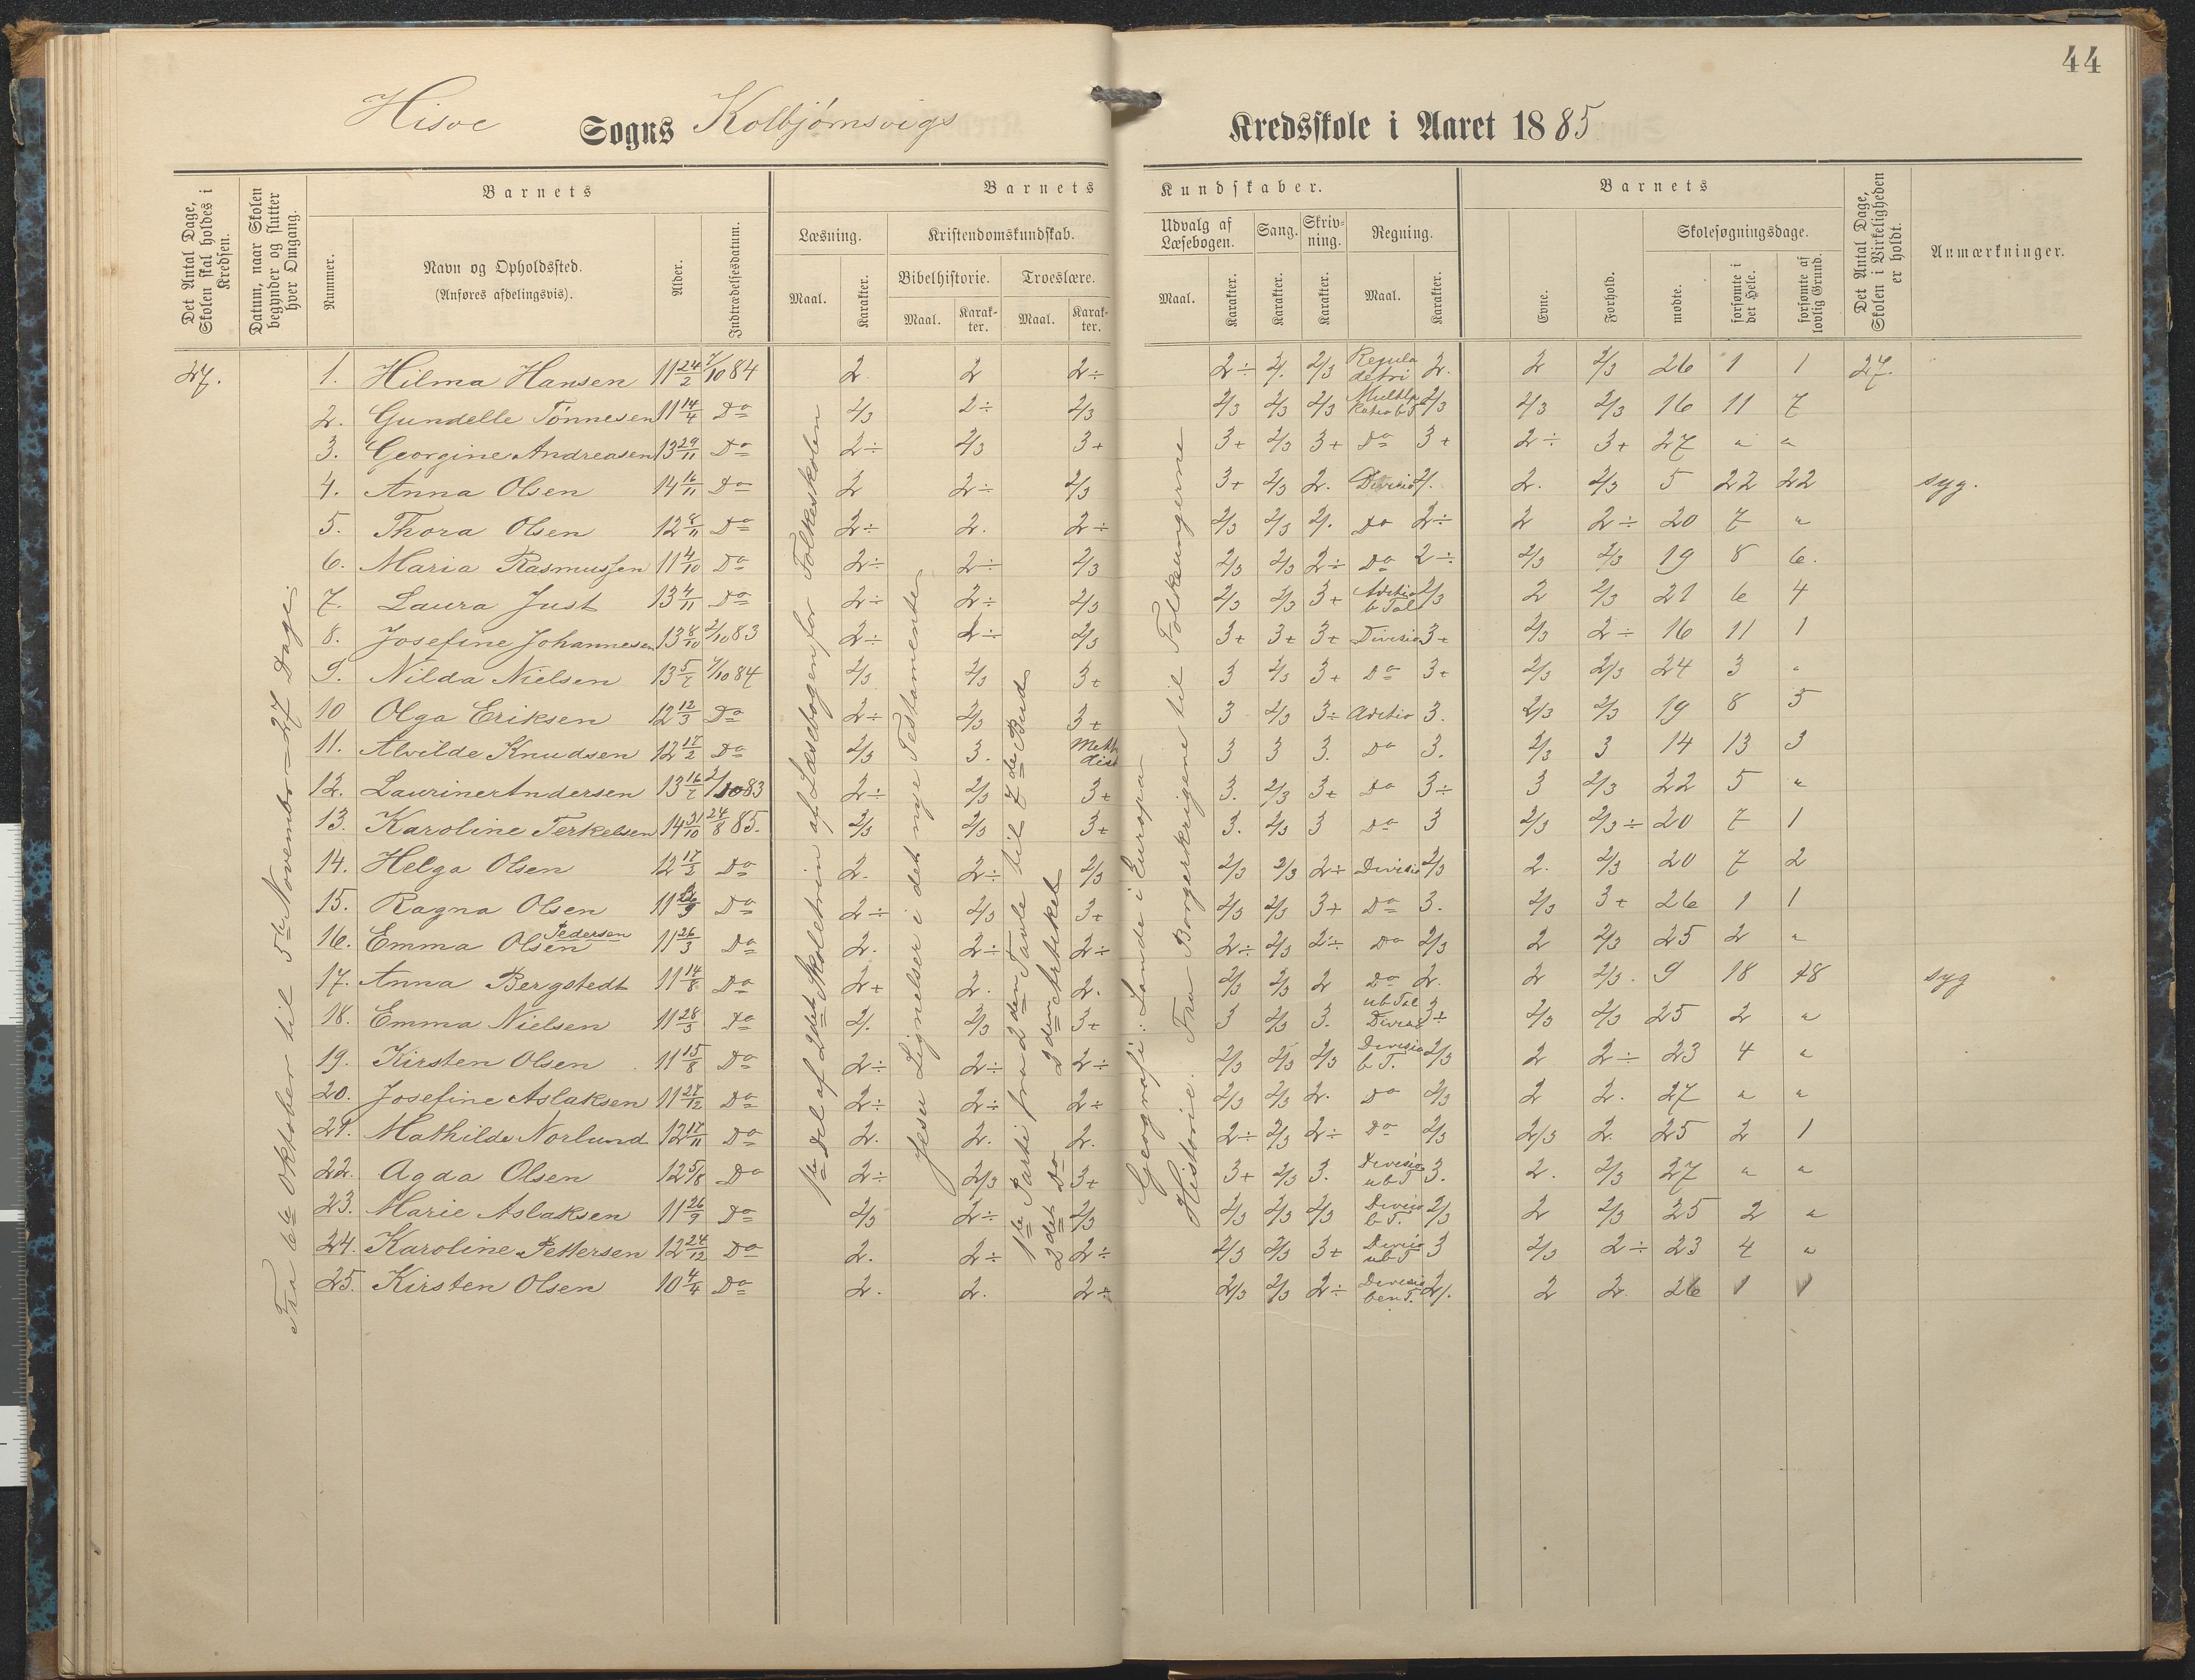 44
Hisøe Sogns Kolbjørnsvigs Kredsskole i Aaret 1885
Det Antal Dage, Skolen skal holdes i Kredsen.
Datum, naar Skolen begynder og slutter hver Omgang.
Barnets
Nummer.
Navn og Opholdssted.
(Anføres afdelingsvis).
Alder.
Indtrædelsesdatum.
Barnets Kundskaber.
Læsning.
Maal.
Karakter.
Kristendomskundskab.
Bibelhistorie.
Maal.
Karakter.
Troeslære.
Maal.
Karakter.
Udvalg af Læsebogen.
Maal.
Karakter.
Sang.
Karakter.
Skrivning.
Karakter.
Regning.
Maal.
Karakter.
Barnets
Evne.
Forhold.
Skolesøgningsdage.
mødte.
forsømte i det Hele.
forsømte af lovlig Grund.
Det Antal Dage, Skolen i Virkeligheden er holdt.
Anmærkninger.
Fra 6te Oktober til 5te November = 27 Dage.
1ste Del af 2det Skoletrin af Læsebogen for Folkeskolen
Jesu Lignelser i det nye Testamente
1ste Parti fra 2den Tavle til 7de Bud
2det Do 2den Artikel
Geografi: Lande i Europa
Historie. Fra Borgerkrigene til Folkeungerne
27. 1. Hilma Hansen 11 24/2 7/10 84 2. 2 2÷ 2÷ 2/. 2/3 Regula detri 2. 2 2/3 26 1 1 27.
2. Gundelle Tønnesen 11 14/4 Do 2/3 2÷ 2/3 2/3 2/3 2/3 2/3 2/3 2/3 16 11 7
3. Georgine Andreasen 13 29/11 Do 2÷ 2/3 3+ 3+ 2/3 3+ Do 3+ 2÷ 3+ 27 " "
4. Anna Olsen 14 16/11 Do 2 2÷ 2/3 3+ 2/3 2. Divisio 2/. 2. 2/3 5 22 22 syg.
5. Thora Olsen 12 8/11 Do 2÷ 2. 2÷ 2/3 2/3 2/. Do 2÷ 2 2÷ 20 7 "
6. Maria Rasmussen 11 4/10 Do 2÷ 2÷ 2/3 2/3 2/3 2÷ Do 2÷ 2/3 2/3 19 8 6.
7. Laura Just 13 4/11 Do 2÷ 2÷ 2/3 2/3 2/3 3+ Adetio b Tal 2/3 2 2/3 21 6 4
8. Josefine Johannesen 13 8/10 2/10 83 2÷ 2÷ 2/3 3+ 3+ 3+ Divisio 3+ 2/3 2÷ 16 11 1
9. Nilda Nielsen 13 5/2 7/10 84 2/3 2/3 3+ 3 2/3 3+ Do 3+ 2/3 2/3 24 3 "
10 Olga Eriksen 12 12/3 Do 2÷ 2/3 3+ 3 2/3 3÷ Adetio 3. 2/3 2/3 19 8 5
11. Alvilde Knudsen 12 17/2 Do 2/3 3. 3 3 3. Do 3. 2/3 3 14 13 3
12. Laurine Andersen 13 16/2 2/10 83 2÷ 2/3 3+ 3. 2/3 3+ Do 3÷ 3 2/3 22 5 "
13. Karoline Terkelsen 14 31/10 24/8 85. 2/3 2/3 3+ 3. 2/3 3 Do 3 2/3 2/3÷ 20 7 1
14. Helga Olsen 12 17/2 Do 2. 2÷ 2/3 2/3 2/3 2÷ Divisio 2/3 2. 2/3 20 7 2
15. Ragna Olsen 11 Do 2÷ 2/3 3+ 2/3 2/3 3+ Do 3. 2/3 3+ 26 1 1
16. Emma Olsen Pedersen 11 26/3 Do 2. 2÷ 2÷ 2÷ 2/3 2÷ Do 2/3 2 2/3 25 2 "
17. Anna Bergstedt 11 14/8 Do 2+ 2. 2. 2/3 2/3 2 Do 2. 2 2/3. 9 18 18 syg
18. Emma Nielsen 11 28/5 Do 2/. 2/3 3+ 3 2/3 3. ub Tal Divisio 3÷ 2/3 2/3 25 2 "
19. Kirsten Olsen 11 15/8 Do 2÷ 2÷ 2÷ 2/3 2/3 2/3 Divisio b T. 2/3 2 2÷ 23 4 "
20. Josefine Aslaksen 11 27/12 Do 2÷ 2÷ 2÷ 2/3 2/3 2. Do 2/3 2 2. 27 " "
21. Mathilde Norlund 12 17/11 Do 2. 2. 2. 2÷ 2/3 2÷ Do 2/3 2/3 2. 25 2 1
22. Agda Olsen 12 5/8 Do 2÷ 2/3 3+ 3+ 2/3 3. Divisio ub T 3. 2. 2/3 27 " "
23. Marie Aslaksen 11 26/9 Do 2/3 2÷ 2/3 2/3 2/3 2/3 Divisio b T. 2/3 2 2/3 25 2 "
24. Karoline Pettersen 12 24/12 Do 2. 2÷ 2÷ 2/3 2/3 3+ Divisio ub T 3 2/3 2÷ 23 4 "
25. Kirsten Olsen 10 4/4 Do 2. 2. 2÷ 2/3 2/3 2÷ Divisio ben T. 2/. 2 2. 26 1 1